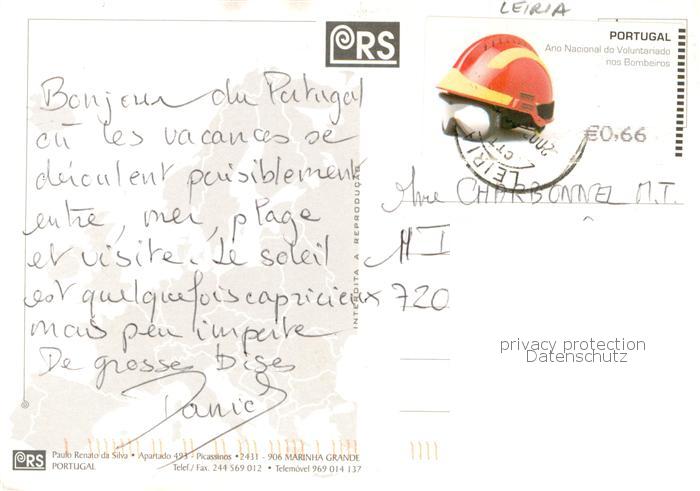 LEIRIA
PRS
PORTUGAL
Ano Nacional do Voluntariado
nos Bombeiros
€0,66
LEIRIA
CTT
Bonjour du Portugal
où les vacances se
déroulent paisiblement
entre, mer, plage
et visite. Le soleil
est quelquefois capricieux
mais peu importe
De grosses bises
INTERDITA A REPRODUÇÃO
Mme CHARBONNEL M.T.
720
privacy protection
Datenschutz
PRS Paulo Renato da Silva • Apartado 493 - Picassinos • 2431 - 906 MARINHA GRANDE
PORTUGAL Telef./ Fax. 244 569 012 • Telemóvel 969 014 137